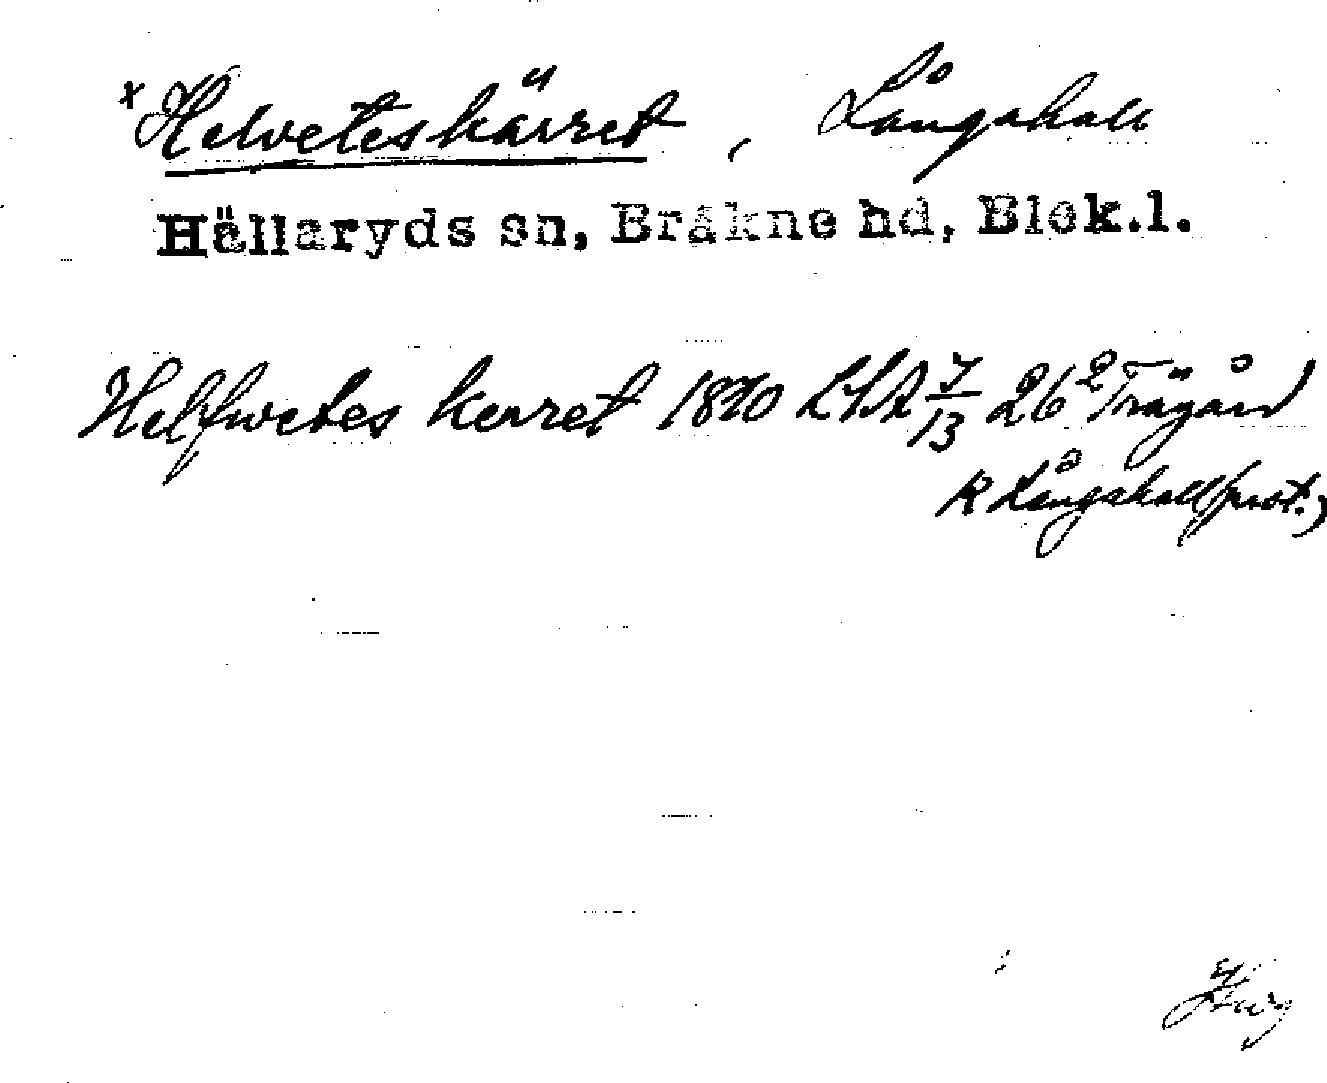 x Helveteskärret, Långahall
Hällaryds sn, Bräkne hd, Blek.l.
Helfwetes kerret 1820 LSA 7/13 26² Trägård
R Långahall (prot.)